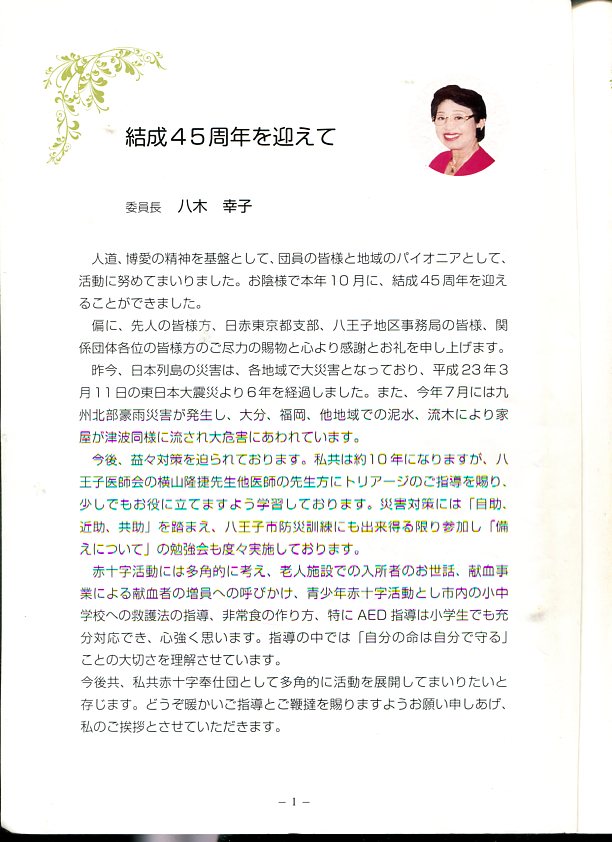 結成45周年を迎えて
委員長 八木 幸子
人道、博愛の精神を基盤として、団員の皆様と地域のパイオニアとして、
活動に努めてまいりました。お陰様で本年10月に、結成45周年を迎え
ることができました。
偏に、先人の皆様方、日赤東京都支部、八王子地区事務局の皆様、関
係団体各位の皆様方のご尽力の賜物と心より感謝とお礼を申し上げます。
昨今、日本列島の災害は、各地域で大災害となっており、平成23年3
月11日の東日本大震災より6年を経過しました。また、今年7月には九
州北部豪雨災害が発生し、大分、福岡、他地域での泥水、流木により家
屋が津波同様に流され大危害にあわれています。
今後、益々対策を迫られております。私共は約10年になりますが、八
王子医師会の横山隆捷先生他医師の先生方にトリアージのご指導を賜り、
少しでもお役に立てますよう学習しております。災害対策には「自助、
近助、共助」を踏まえ、八王子市防災訓練にも出来得る限り参加し「備
えについて」の勉強会も度々実施しております。
赤十字活動には多角的に考え、老人施設での入所者のお世話、献血事
業による献血者の増員への呼びかけ、青少年赤十字活動とし市内の小中
学校への救護法の指導、非常食の作り方、特にAED指導は小学生でも充
分対応でき、心強く思います。指導の中では「自分の命は自分で守る」
ことの大切さを理解させています。
今後共、私共赤十字奉仕団として多角的に活動を展開してまいりたいと
存じます。どうぞ暖かいご指導とご鞭撻を賜りますようお願い申しあげ、
私のご挨拶とさせていただきます。
− 1 −